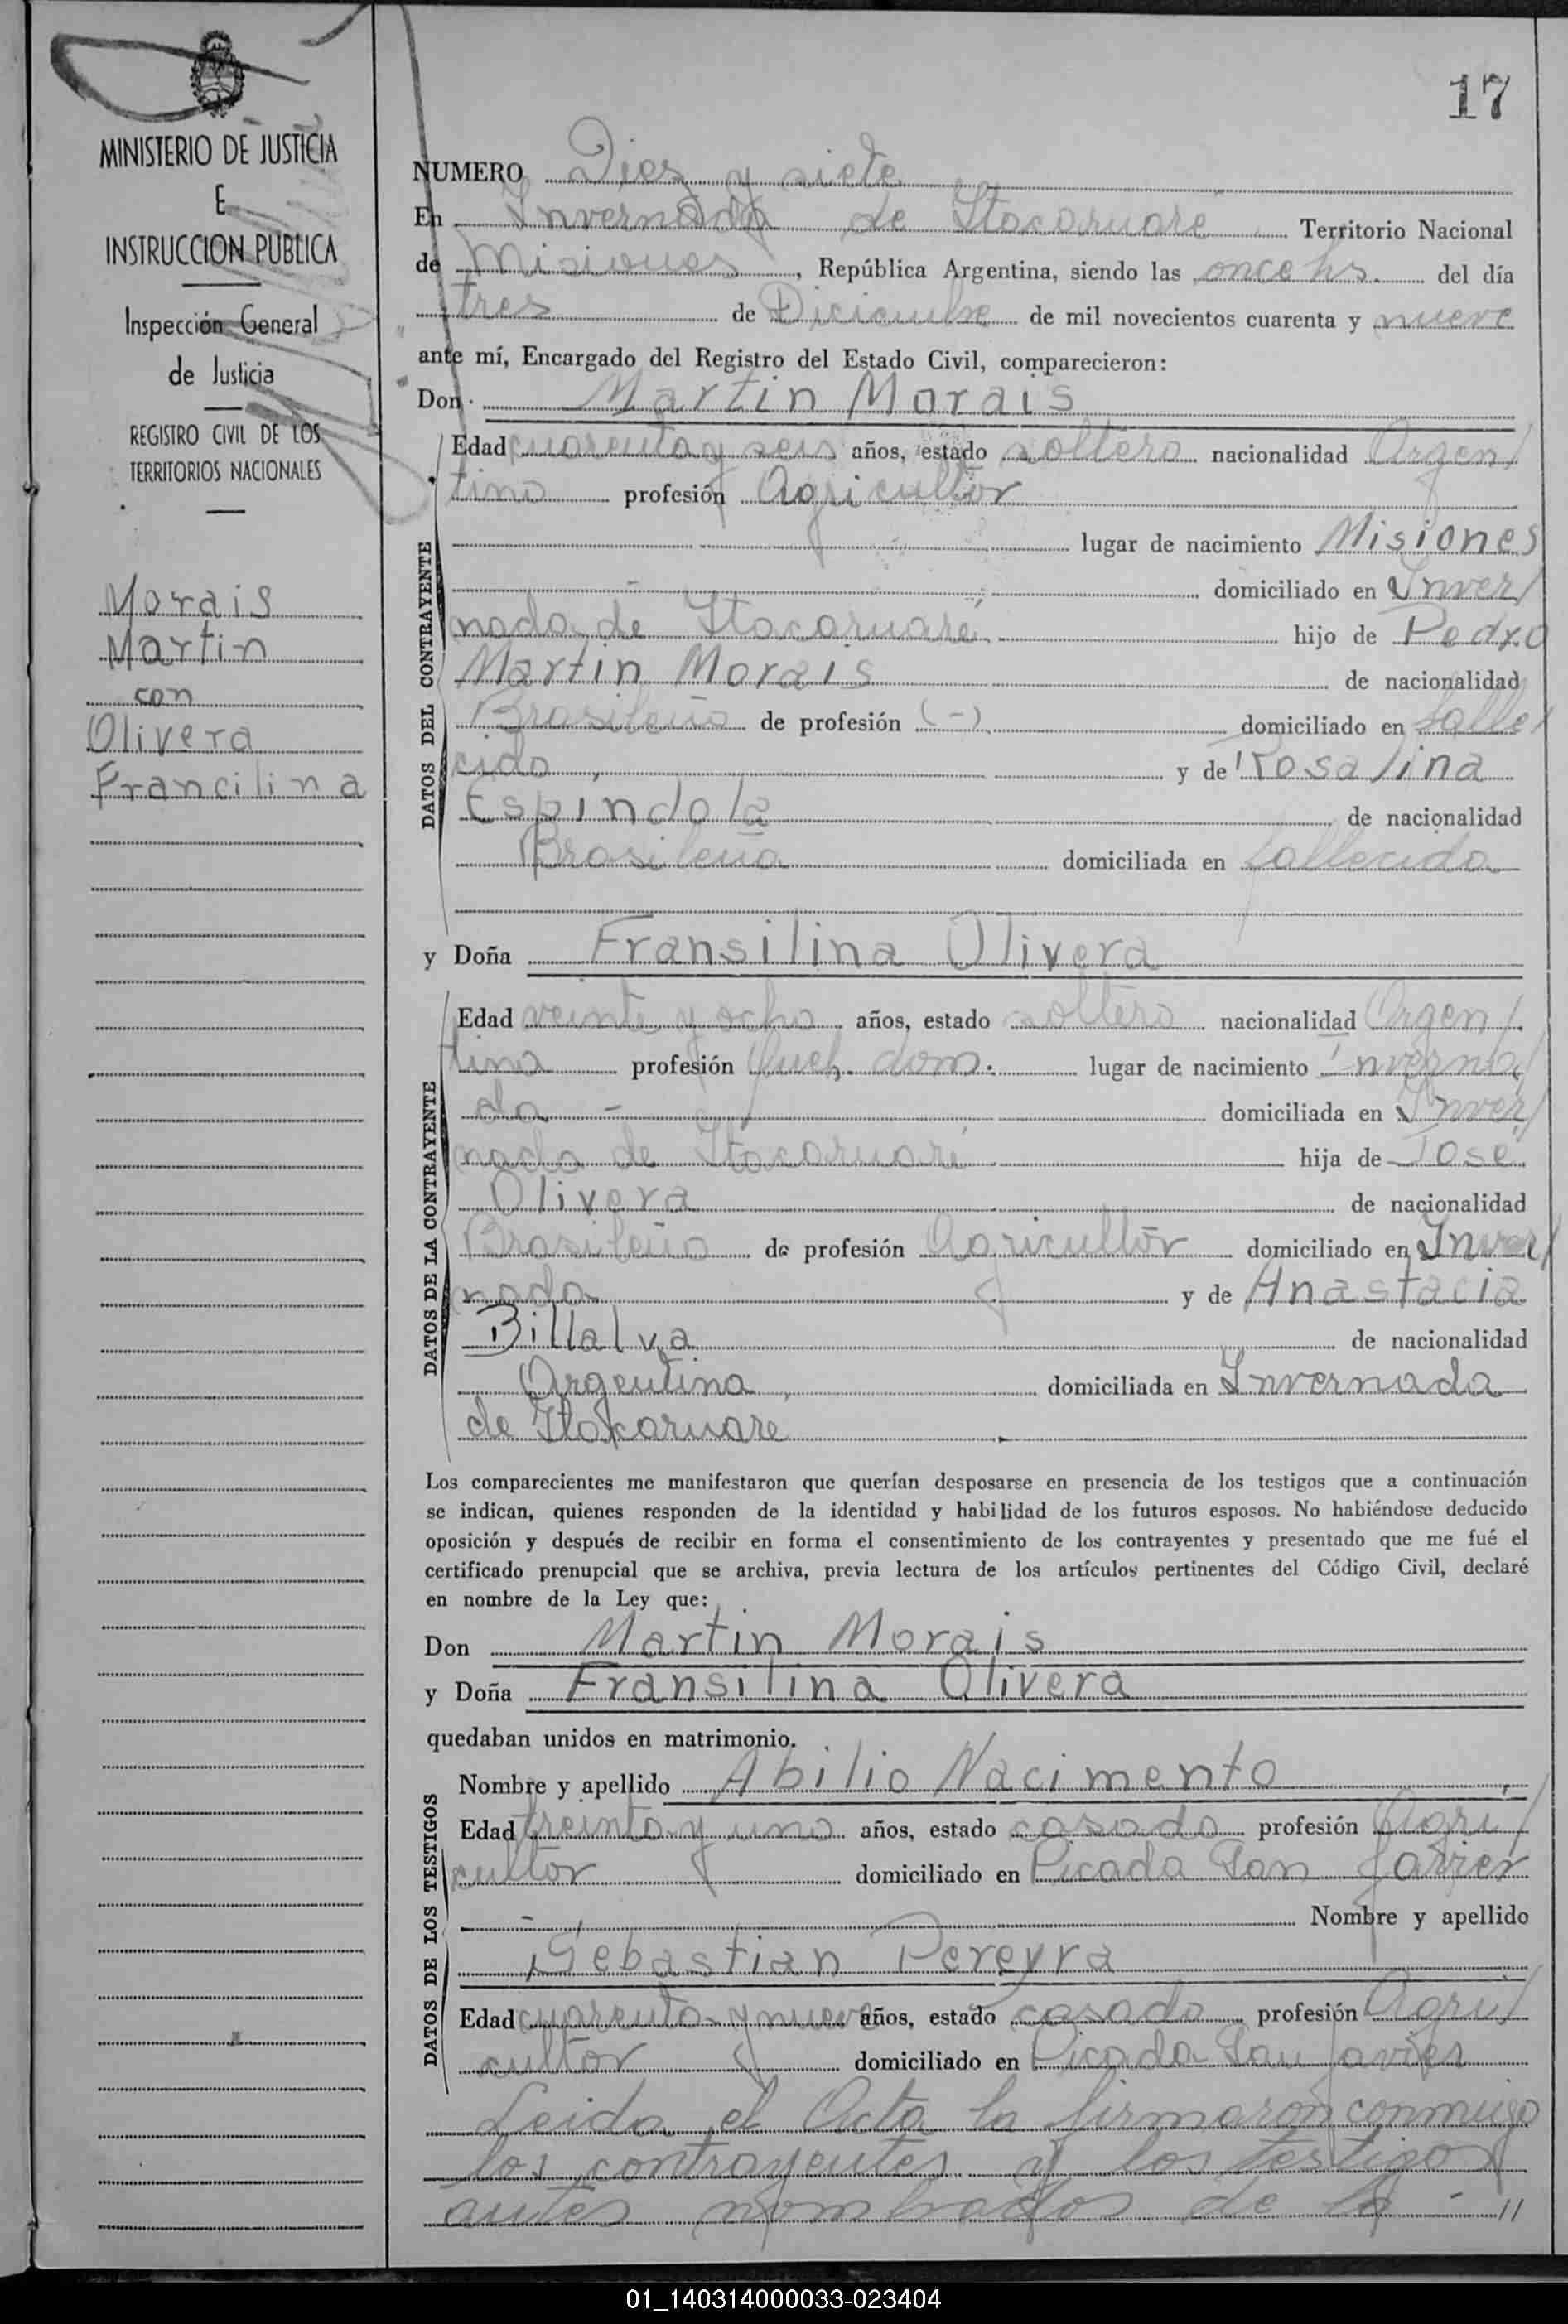 MINISTERIO DE JUSTICIA
E
INSTRUCCION PUBLICA
Inspección General
de Justicia
REGISTRO CIVIL DE LOS
TERRITORIOS NACIONALES
Morais
Martin
con
Olivera
Francilina
17
NUMERO Dies y siete
En Invernada de Itacaruaré Territorio Nacional
de Misiones, República Argentina, siendo las once hs. del día
tres de Diciembre de mil novecientos cuarenta y nueve
ante mí, Encargado del Registro del Estado Civil, comparecieron:
Don Martin Morais
DATOS DEL CONTRAYENTE
Edad cuarenta y seis años, estado soltero nacionalidad Argen/
tino profesión Agricultor
lugar de nacimiento Misiones
domiciliado en Inver/
nada de Itacaruaré hijo de Pedro
Martin Morais de nacionalidad
Brasileño de profesión (-) domiciliado en falle/
cido y de Rosalina
Espíndola de nacionalidad
Brasileña domiciliada en fallecida
y Doña Fransilina Olivera
DATOS DE LA CONTRAYENTE
Edad veinte y ocho años, estado soltera nacionalidad Argen/
tina profesión queh. dom. lugar de nacimiento Inverna/
da - domiciliada en Inver/
nada de Itacaruaré hija de José
Olivera de nacionalidad
Brasileño de profesión Agricultor domiciliado en Inver/
nada y de Anastacia
Billalva de nacionalidad
Argentina, domiciliada en Invernada
de Itacaruare
Los comparecientes me manifestaron que querían desposarse en presencia de los testigos que a continuación
se indican, quienes responden de la identidad y habilidad de los futuros esposos. No habiéndose deducido
oposición y después de recibir en forma el consentimiento de los contrayentes y presentado que me fué el
certificado prenupcial que se archiva, previa lectura de los artículos pertinentes del Código Civil, declaré
en nombre de la Ley que:
Don Martin Morais
y Doña Fransilina Olivera
quedaban unidos en matrimonio.
DATOS DE LOS TESTIGOS
Nombre y apellido Abilio Nacimento
Edad treinta y uno años, estado casado profesión Agri/
cultor domiciliado en Picada San Javier
Nombre y apellido
Sebastian Pereyra
Edad cuarenta y nueve años, estado casado profesión Agri/
cultor domiciliado en Picada San Javier
Leida el Acta la firmaron conmigo
los contrayentes y los testigos
antes nombrados de la - //
01_140314000033-023404